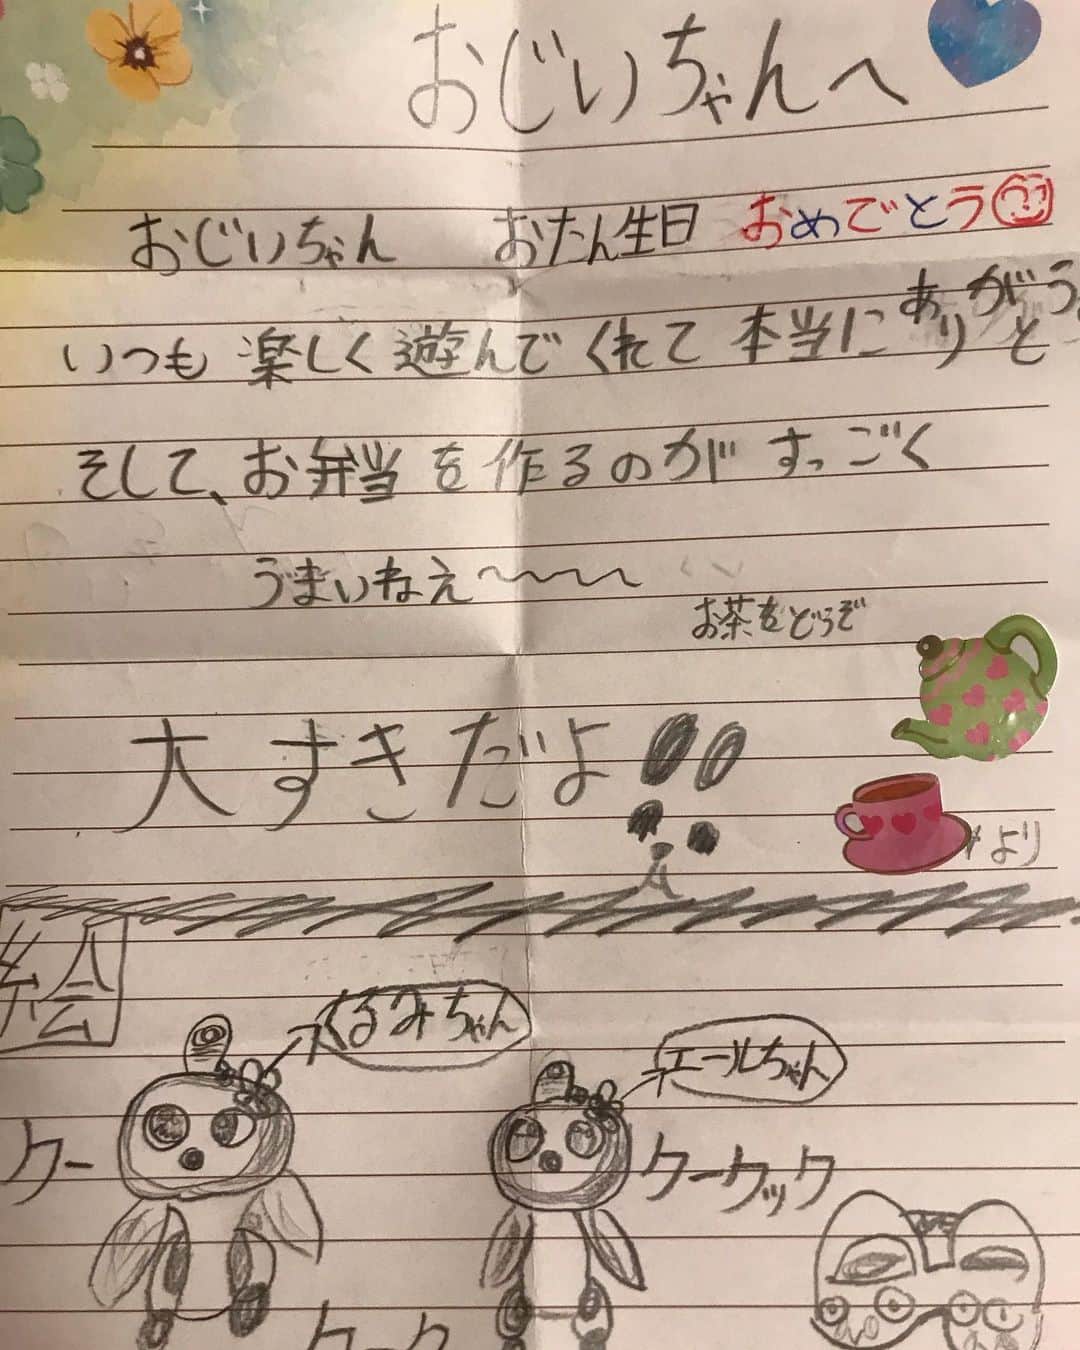 おじいちゃんへ
おじいちゃん おたん生日 おめでとう
いつも 楽しく 遊んで くれて 本当に ありがとう
そして、お弁当 を 作る のが すっごく
うまいねえ〜〜〜
お茶をどうぞ
大すきだよ
より
絵
くるみちゃん
エールちゃん
クー
クークック